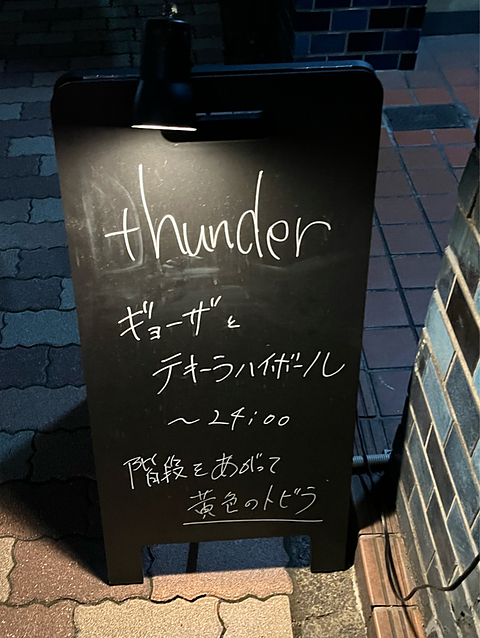 thunder
ギョーザと
テキーラハイボール
～24:00
階段をあがって
黄色のトビラ